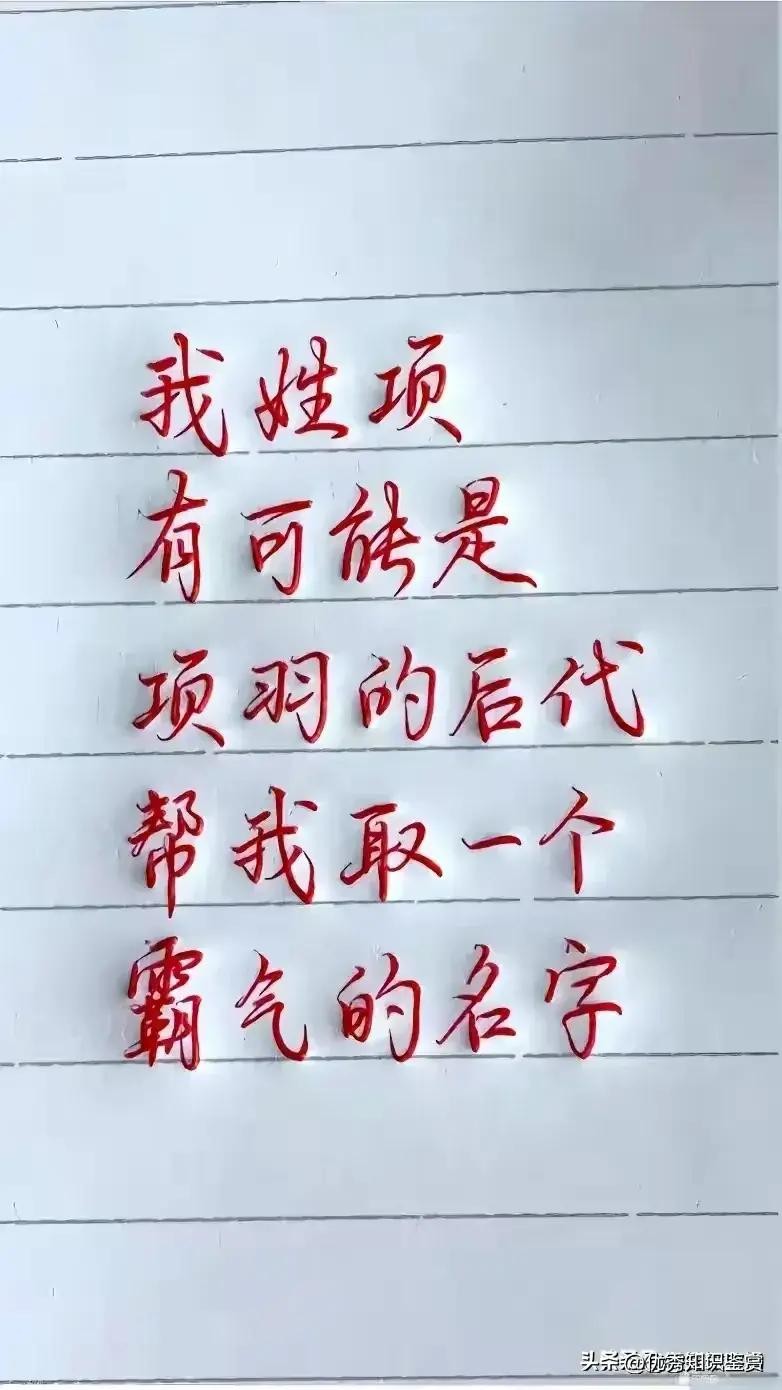 我姓项
有可能是
项羽的后代
帮我取一个
霸气的名字
头条@优秀知识鉴赏